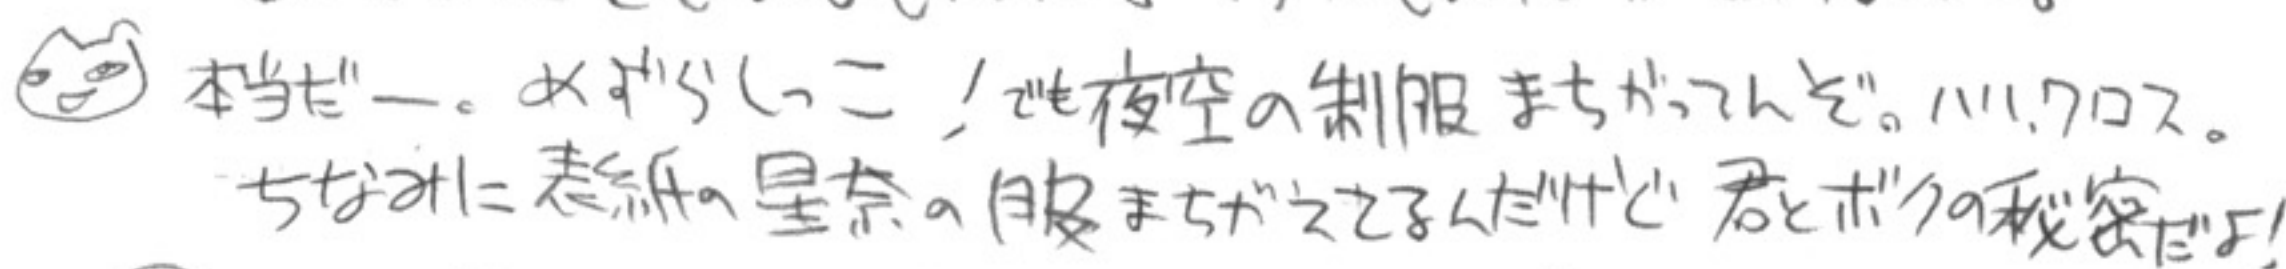 本当だー。めずらしっこ!でも夜空の制服まちがってんぞ。ハハ、ワロス。
ちなみに表紙の星奈の服まちがえてるんだけど君とボクの秘密だよ!